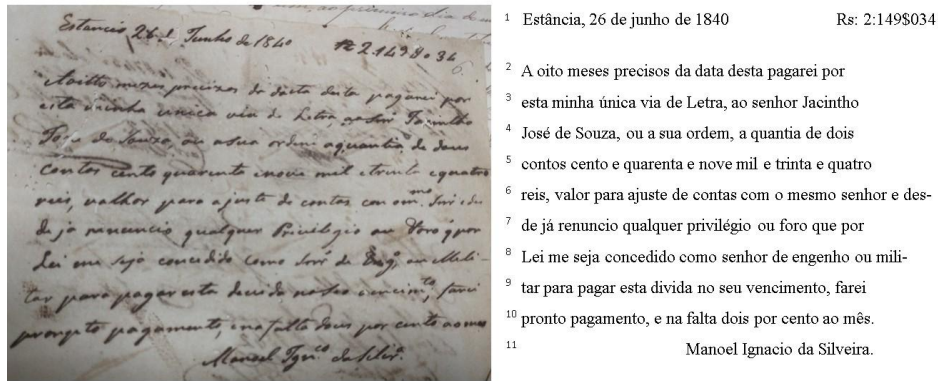 Estancia 26 de Junho de 1840 Rs 2:149$034
6.
Aoitto mezes precizos da dacta desta pagarei por
esta minha unica via de Letra, ao Senr Jacintho
Joze de Souza, ou a sua ordem a quantia de dous
contos cento quarenta e nove mil e trinta e quatro
reis, valhor para ajuste de contas com o mmo Snr e des
de já renuncio qualquer Privilegio ou Foro q por
Lei me seja concedido como Senr de Engo, ou Meli-
tar para pagar esta devida no seo vencimto, farei
prompto pagamento, e na falta dous por cento ao mes
Manoel Ignco da Silvra
1 Estância, 26 de junho de 1840 Rs: 2:149$034
2 A oito meses precisos da data desta pagarei por
3 esta minha única via de Letra, ao senhor Jacintho
4 José de Souza, ou a sua ordem, a quantia de dois
5 contos cento e quarenta e nove mil e trinta e quatro
6 reis, valor para ajuste de contas com o mesmo senhor e des-
7 de já renuncio qualquer privilégio ou foro que por
8 Lei me seja concedido como senhor de engenho ou mili-
9 tar para pagar esta divida no seu vencimento, farei
10 pronto pagamento, e na falta dois por cento ao mês.
11 Manoel Ignacio da Silveira.